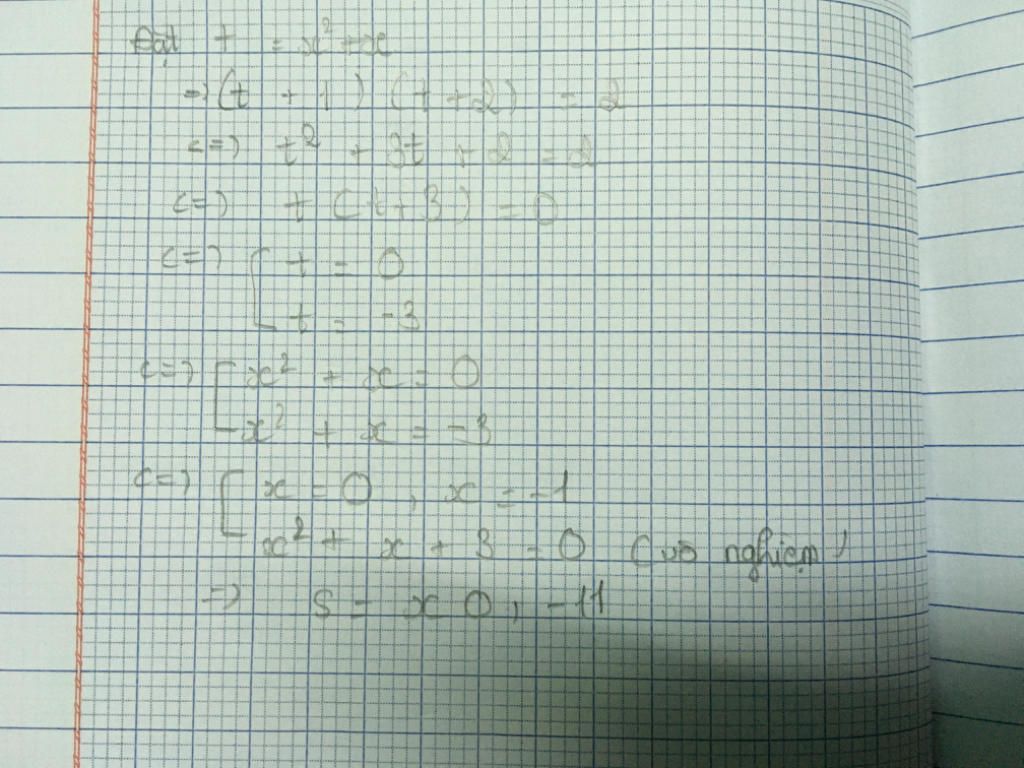 Đặt t = x² + x
=> (t + 1) (t + 2) = 2
<=> t² + 3t + 2 = 2
<=> t (t + 3) = 0
<=> [ t = 0
t = -3
<=> [ x² + x = 0
x² + x = -3
<=> [ x = 0 , x = -1
x² + x + 3 = 0 (vô nghiệm)
=> S = x 0 , -1}